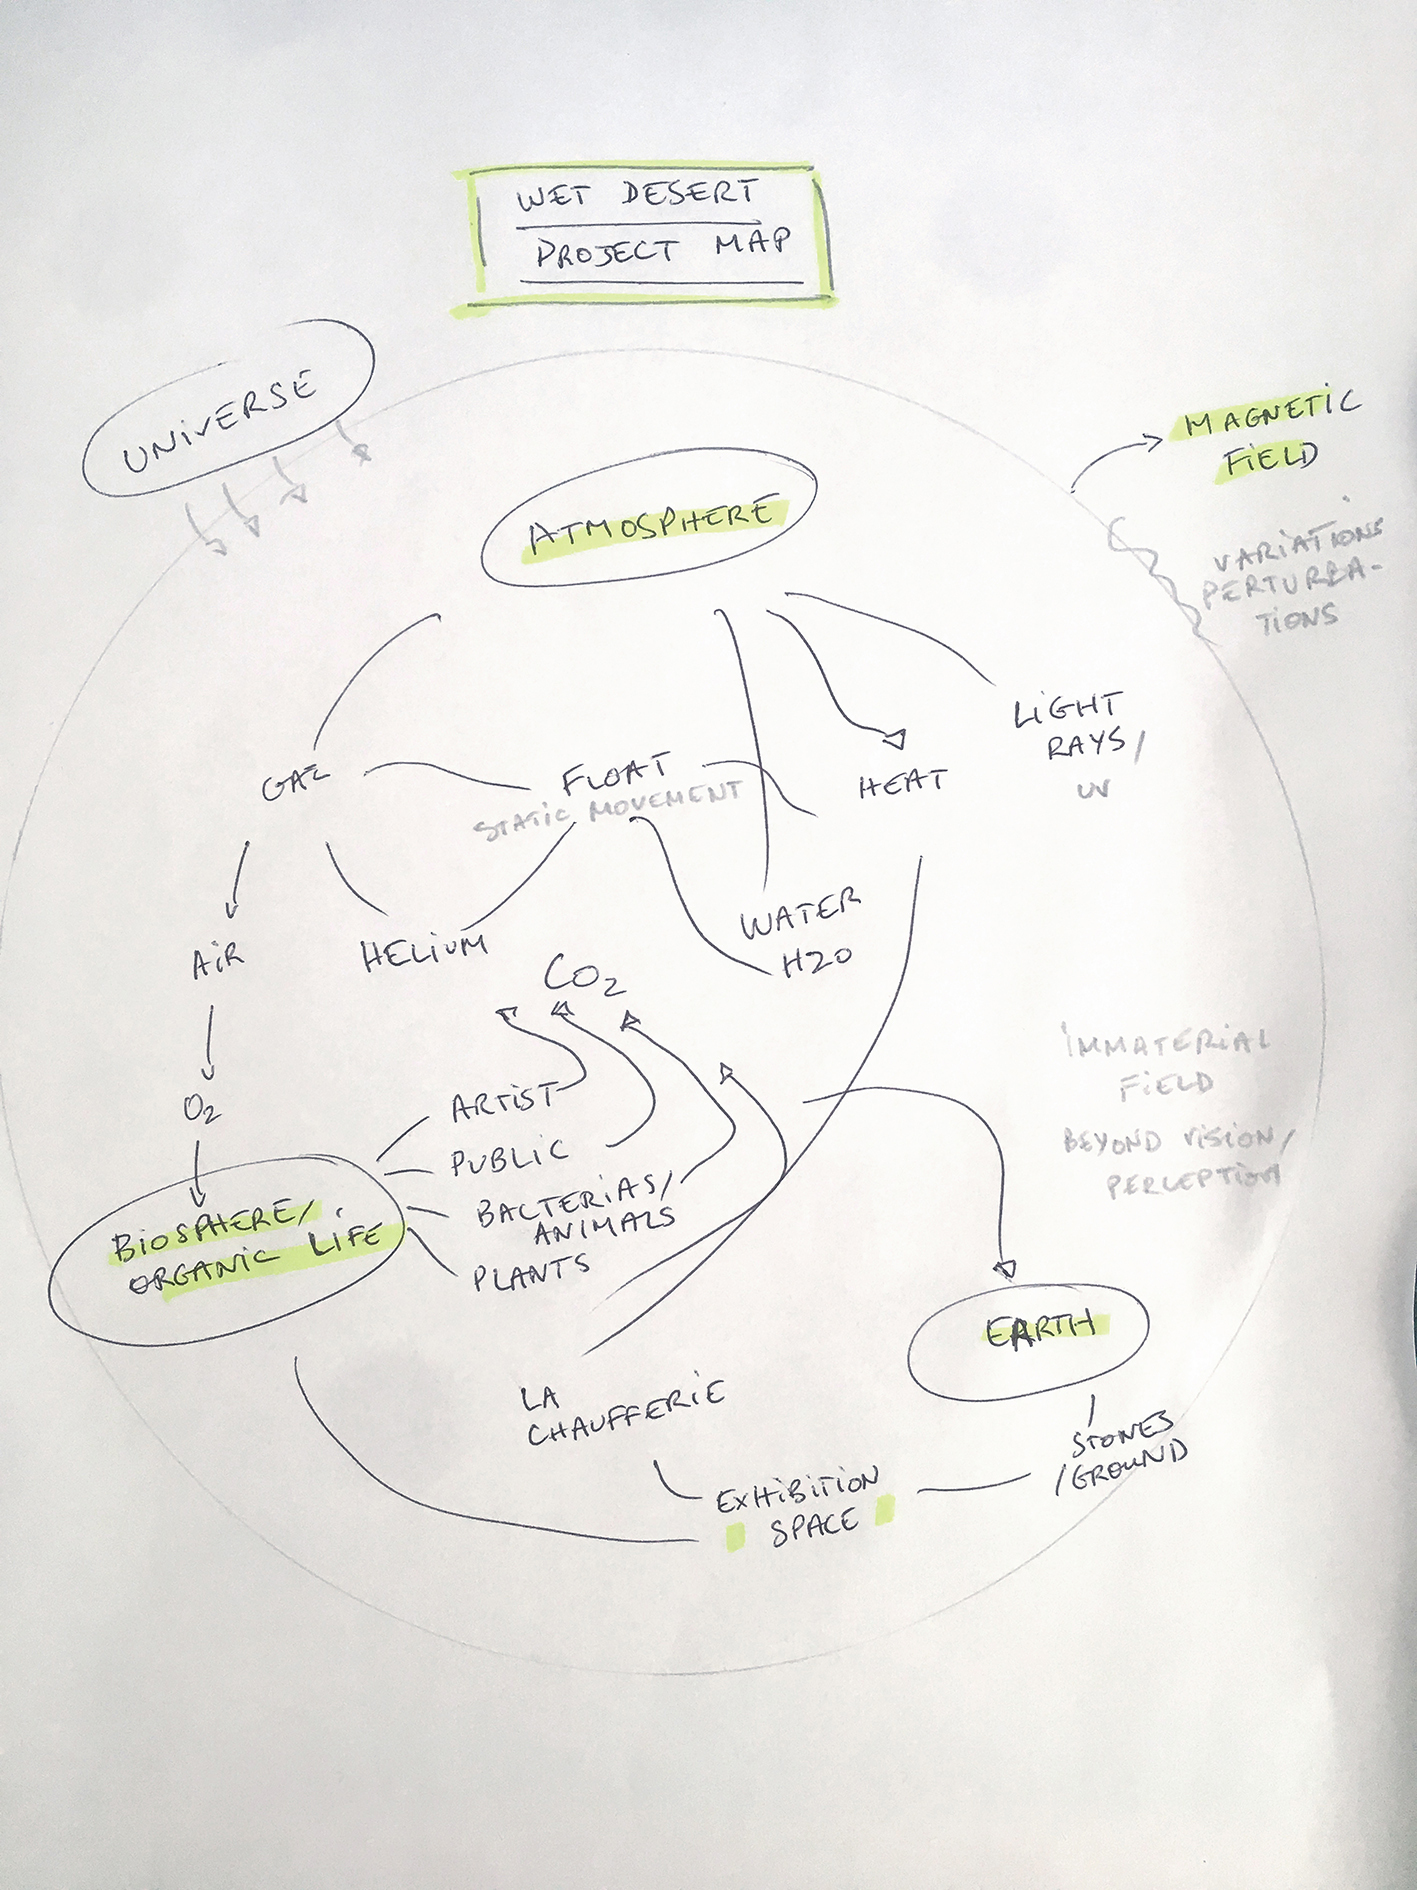 WET DESERT
PROJECT MAP
UNiVERSE
MAGNETiC
FiELD
ATMOSPHERE
VARIATIONS
PERTURBA-
TiONS
LiGHT
RAYS/
UV
GAZ
FLOAT
STATiC MOVEMENT
HEAT
WATER
H2O
AiR
HELiUM
CO2
iMMATERiAL
FiELD
BEYOND ViSiON/
PERCEPTiON
O2
ARTiST
PUBLiC
BACTERiAS/
ANiMALS
PLANTS
BiOSPHERE/
ORGANiC LiFE
EARTH
LA
CHAUFFERiE
STONES
/GROUND
EXHiBiTiON
SPACE